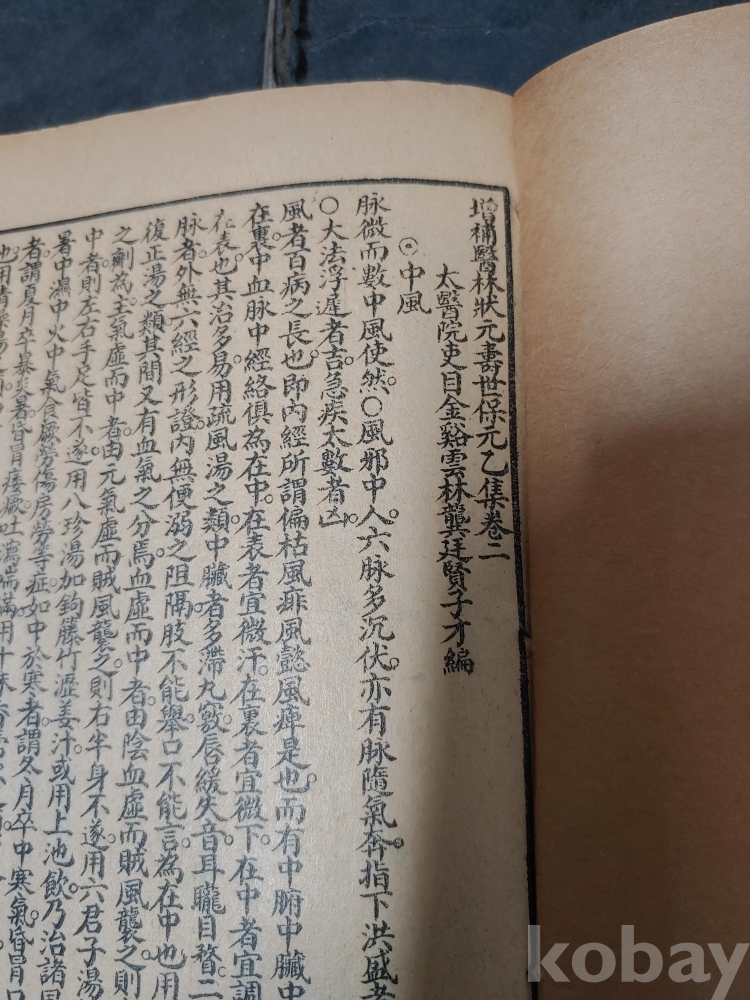 增補醫林狀元壽世保元乙集卷二
太醫院吏目金谿雲林龔廷賢子才編
⊙中風
脉微而數中風使然。○風邪中人。六脉多沉伏。亦有脉隨氣奔。指下洪盛者
○大法浮遲者吉。急疾大數者凶。
風者百病之長也。即內經所謂偏枯風痱風懿風痺是也。而有中腑中臟中
在裏。中血脉中經絡俱為在中。在表者宜微汗。在裏者宜微下。在中者宜調
在表也。其治多易。用疏風湯之類。中臟者多滯九竅。唇緩失音。耳朧目瞀。二
脉者。外無六經之形證。內無便溺之阻隔。肢不能舉。口不能言。為在中也。用
復正湯之類。其間又有血氣之分焉。血虛而中者。由陰血虛而賊風襲之。則
之劑為主。氣虛而中者。由元氣虛而賊風襲之。則右半身不遂。用六君子湯
中者則左右手足皆不遂。用八珍湯加鉤籐竹瀝姜汁。或用上池飲。乃治諸風
暑中濕中火中氣食厥勞傷房勞等症。如中於寒者。謂冬月卒中寒氣。昏冒口
者。謂夏月卒暴炎暑。昏冒痿厥。吐瀉喘滿。用十味香薷飲
也。用清燥湯
kobay